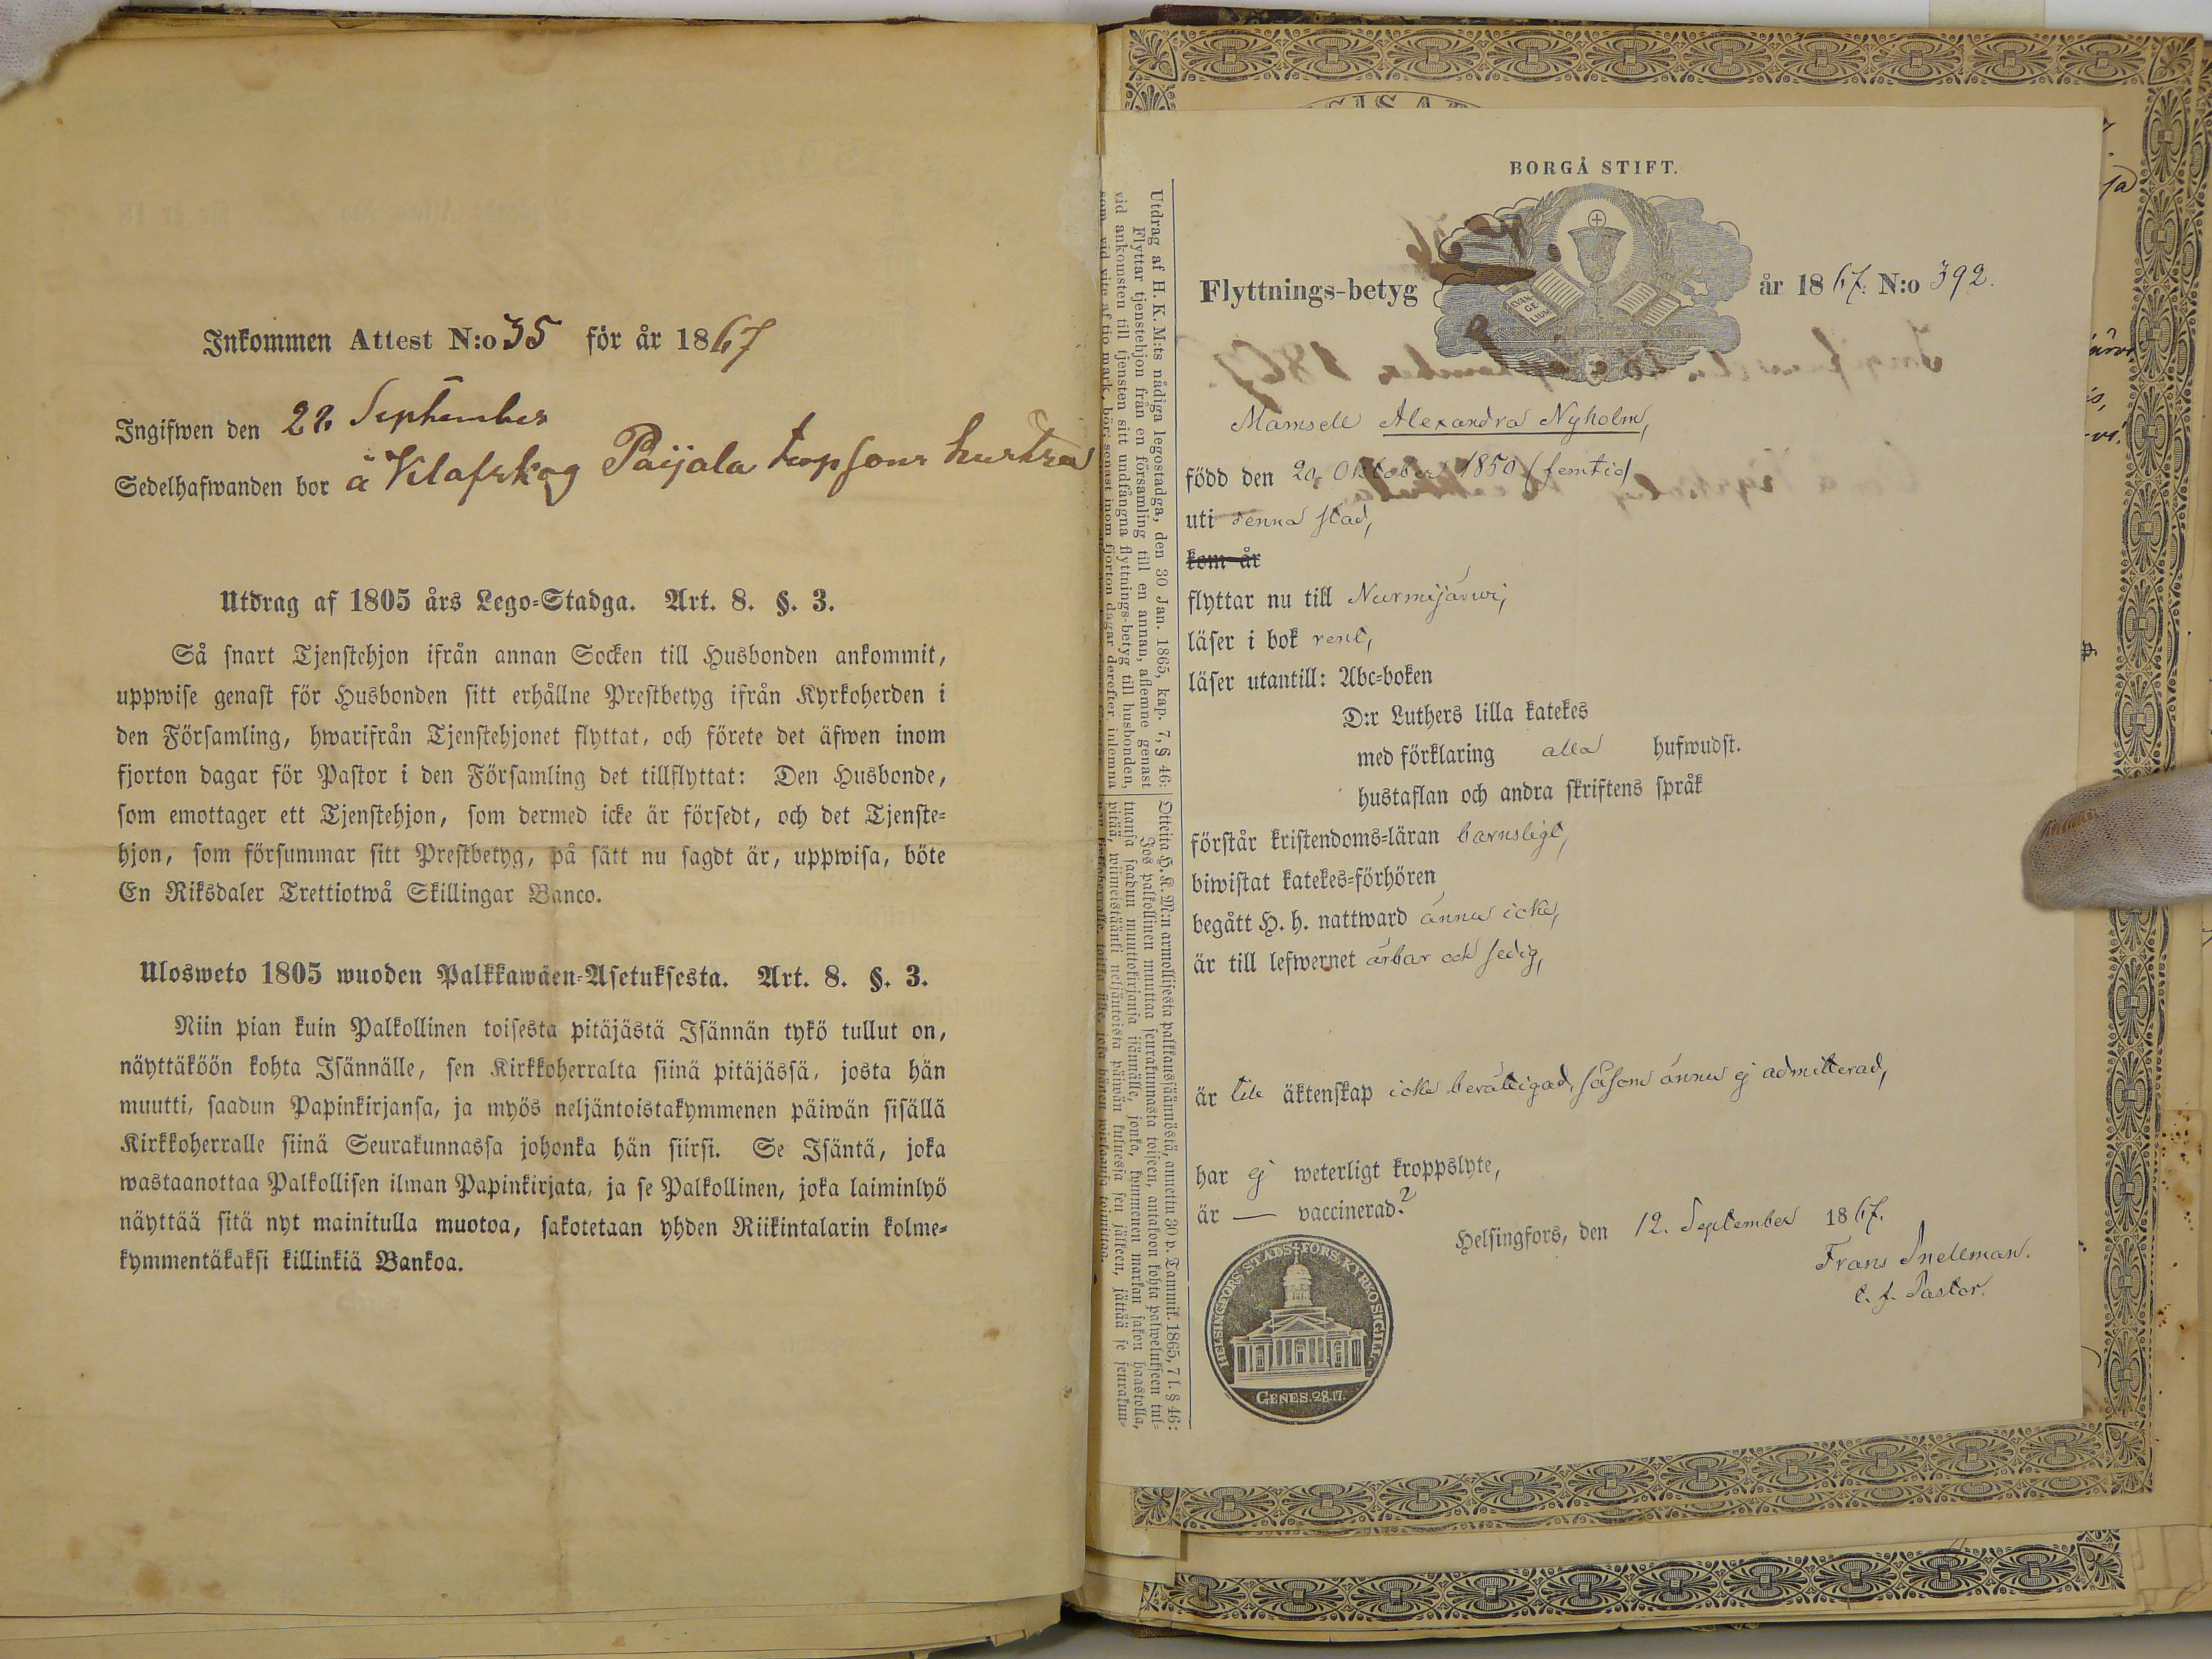 Inkommen Attest N:o 35 för år 1867
Ingifwen den 22 September
Sedelhafwanden bor å Klafskog Paijala torpsons hustru
Utdrag af 1805 års Lego=Stadga. Art. 8. §. 3.
Så snart Tjenstehjon ifrån annan Socken till Husbonden ankommit,
uppwise genast för Husbonden sitt erhållne Prestbetyg ifrån Kyrkoherden i
den Församling, hwarifrån Tjenstehjonet flyttat, och förete det äfwen inom
fjorton dagar för Pastor i den Församling det tillflyttat: Den Husbonde,
som emottager ett Tjenstehjon, som dermed icke är försedt, och det Tjenste=
hjon, som försummar sitt Prestbetyg, på sätt nu sagdt är, uppwisa, böte
En Riksdaler Trettiotwå Skillingar Banco.
Ulosweto 1805 wuoden Palkkawäen=Asetuksesta. Art. 8. §. 3.
Niin pian kuin Palkollinen toisesta pitäjästä Isännän tykö tullut on,
näyttäköön kohta Isännälle, sen Kirkkoherralta siinä pitäjässä, josta hän
muutti, saadun Papinkirjansa, ja myös neljäntoistakymmenen päiwän sisällä
Kirkkoherralle siinä Seurakunnassa johonka hän siirsi. Se Isäntä, joka
wastaanottaa Palkollisen ilman Papinkirjata, ja se Palkollinen, joka laiminlyö
näyttää sitä nyt mainitulla muotoa, sakotetaan yhden Riikintalarin kolme=
kymmentäkaksi killinkiä Bankoa.
Utdrag af H. K. M:ts nådiga legostadga, den 30 Jan. 1865, kap. 7, § 46:
Flyttar tjenstehjon från en församling till en annan, aflemne genast
vid ankomsten till tjensten sitt undfångna flyttnings-betyg till husbonden,
som vid vite af tio mark, bör senast inom fjorton dagar derefter inlemna
Otteita H. K. M:n armollisesta palkkaussäännöstä, annettu 30 p. Tammik. 1865, 7 l. § 46:
Jos palkollinen muuttaa seurakunnasta toiseen, antakoon kohta palwelukseen tul=
tuansa saadun muuttokirjansa isännälle, jonka, kymmenen markan sakon haastolla,
pitää, wiimeistäänki neljäntoista päiwän kuluessa sen jälkeen, jättää se seurakun=
BORGÅ STIFT.
EVAN
GE
LIUM
Flyttnings-betyg år 1867. N:o 392.
Mamsell Alexandra Nyholm,
född den 20. Oktober 1850 (femtio)
uti denna stad,
kom år
flyttar nu till Nurmijärwi,
läser i bok rent,
läser utantill: Abc=boken
D:r Luthers lilla katekes
med förklaring alla hufwudst.
hustaflan och andra skriftens språk
förstår kristendoms=läran barnsligt,
biwistat katekes=förhören
begått H. h. nattward ännu icke,
är till lefwernet ärbar och sedig,
är till äktenskap icke berättigad, såsom ännu ej admitterad,
har ej weterligt kroppslyte,
är — vaccinerad?
Helsingfors, den 12. September 1867.
Frans Snellman.
t. f. Pastor.
HELSINGFORS STADS FÖRS. KYRKO SIGILL.
GENES. 28.17.